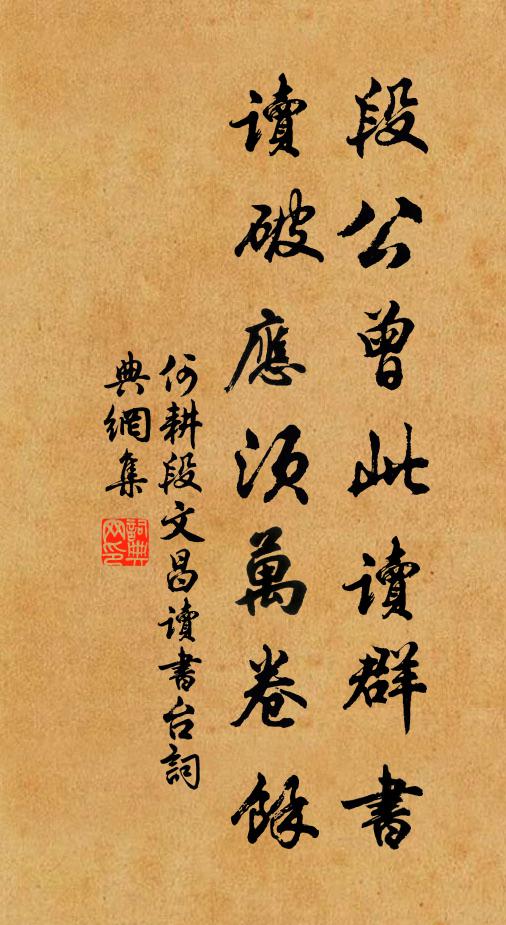 段公曾此讀群書
讀破應須萬卷餘
何耕段文昌讀書台詞
典網集
詞典網印